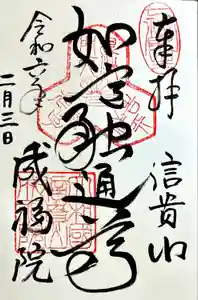 奉拝 信貴山
如意融通尊
成福院
令和六年
二月三日